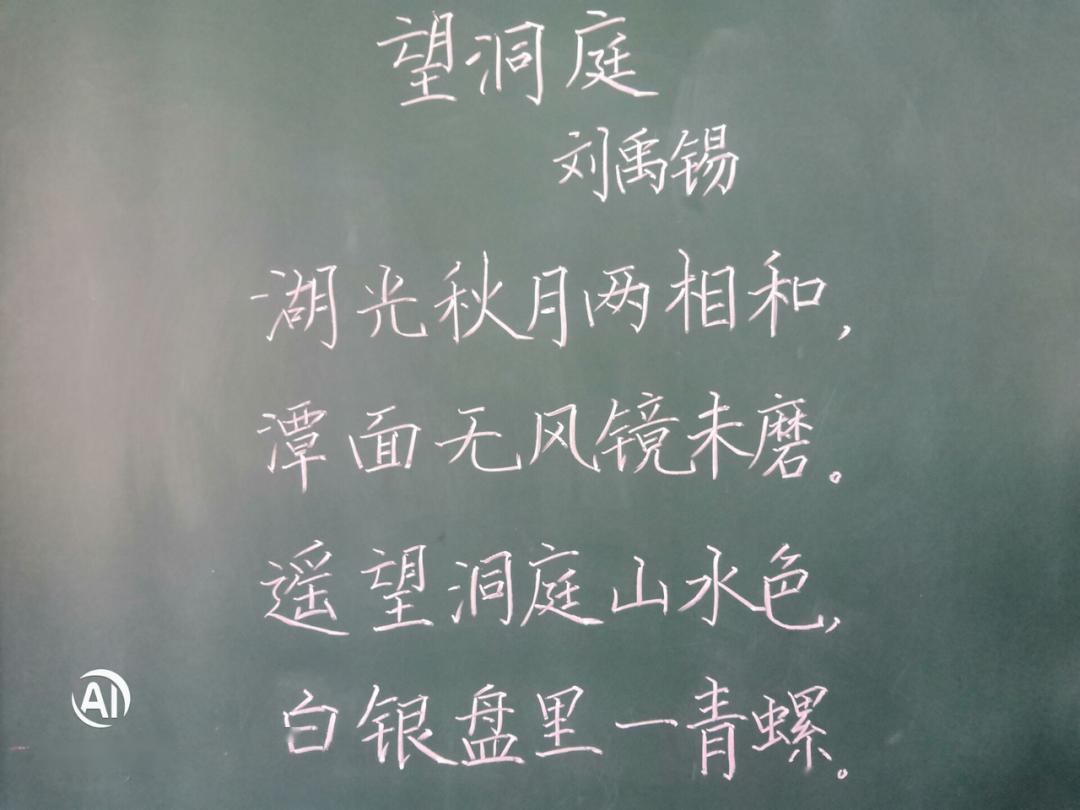 望洞庭
刘禹锡
湖光秋月两相和，
潭面无风镜未磨。
遥望洞庭山水色，
白银盘里一青螺。
AI